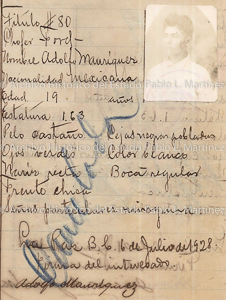 Título 80
Chofer
Nombre Adolfo Manríquez
Nacionalidad Mexicana
Edad 19 años
Estatura 1.63
Pelo Castaño Cejas negras pobladas
Ojos verdes Color blanco
Nariz recta Boca regular
Frente chica
Señas particulares ninguna
La Paz B. C. 6 de Julio de 1928
Firma del interesado
Adolfo Manríquez
Cancelado
Pablo L. Martínez